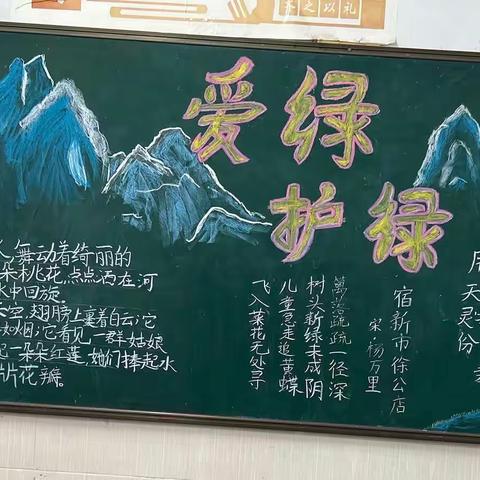 齐之以礼
爱绿
护绿
舞动着绮丽的
朵桃花,点点洒在河
水中回旋。
空,翅膀上裹着白云;它
如烟;它看见一群姑娘
起一朵朵红莲,她们捧起水
片花瓣。
宿新市徐公店
宋·杨万里
萬落疏疏一径深
树头新绿未成阴
儿童急走追黄蝶
飞入菜花无处寻
天灵份